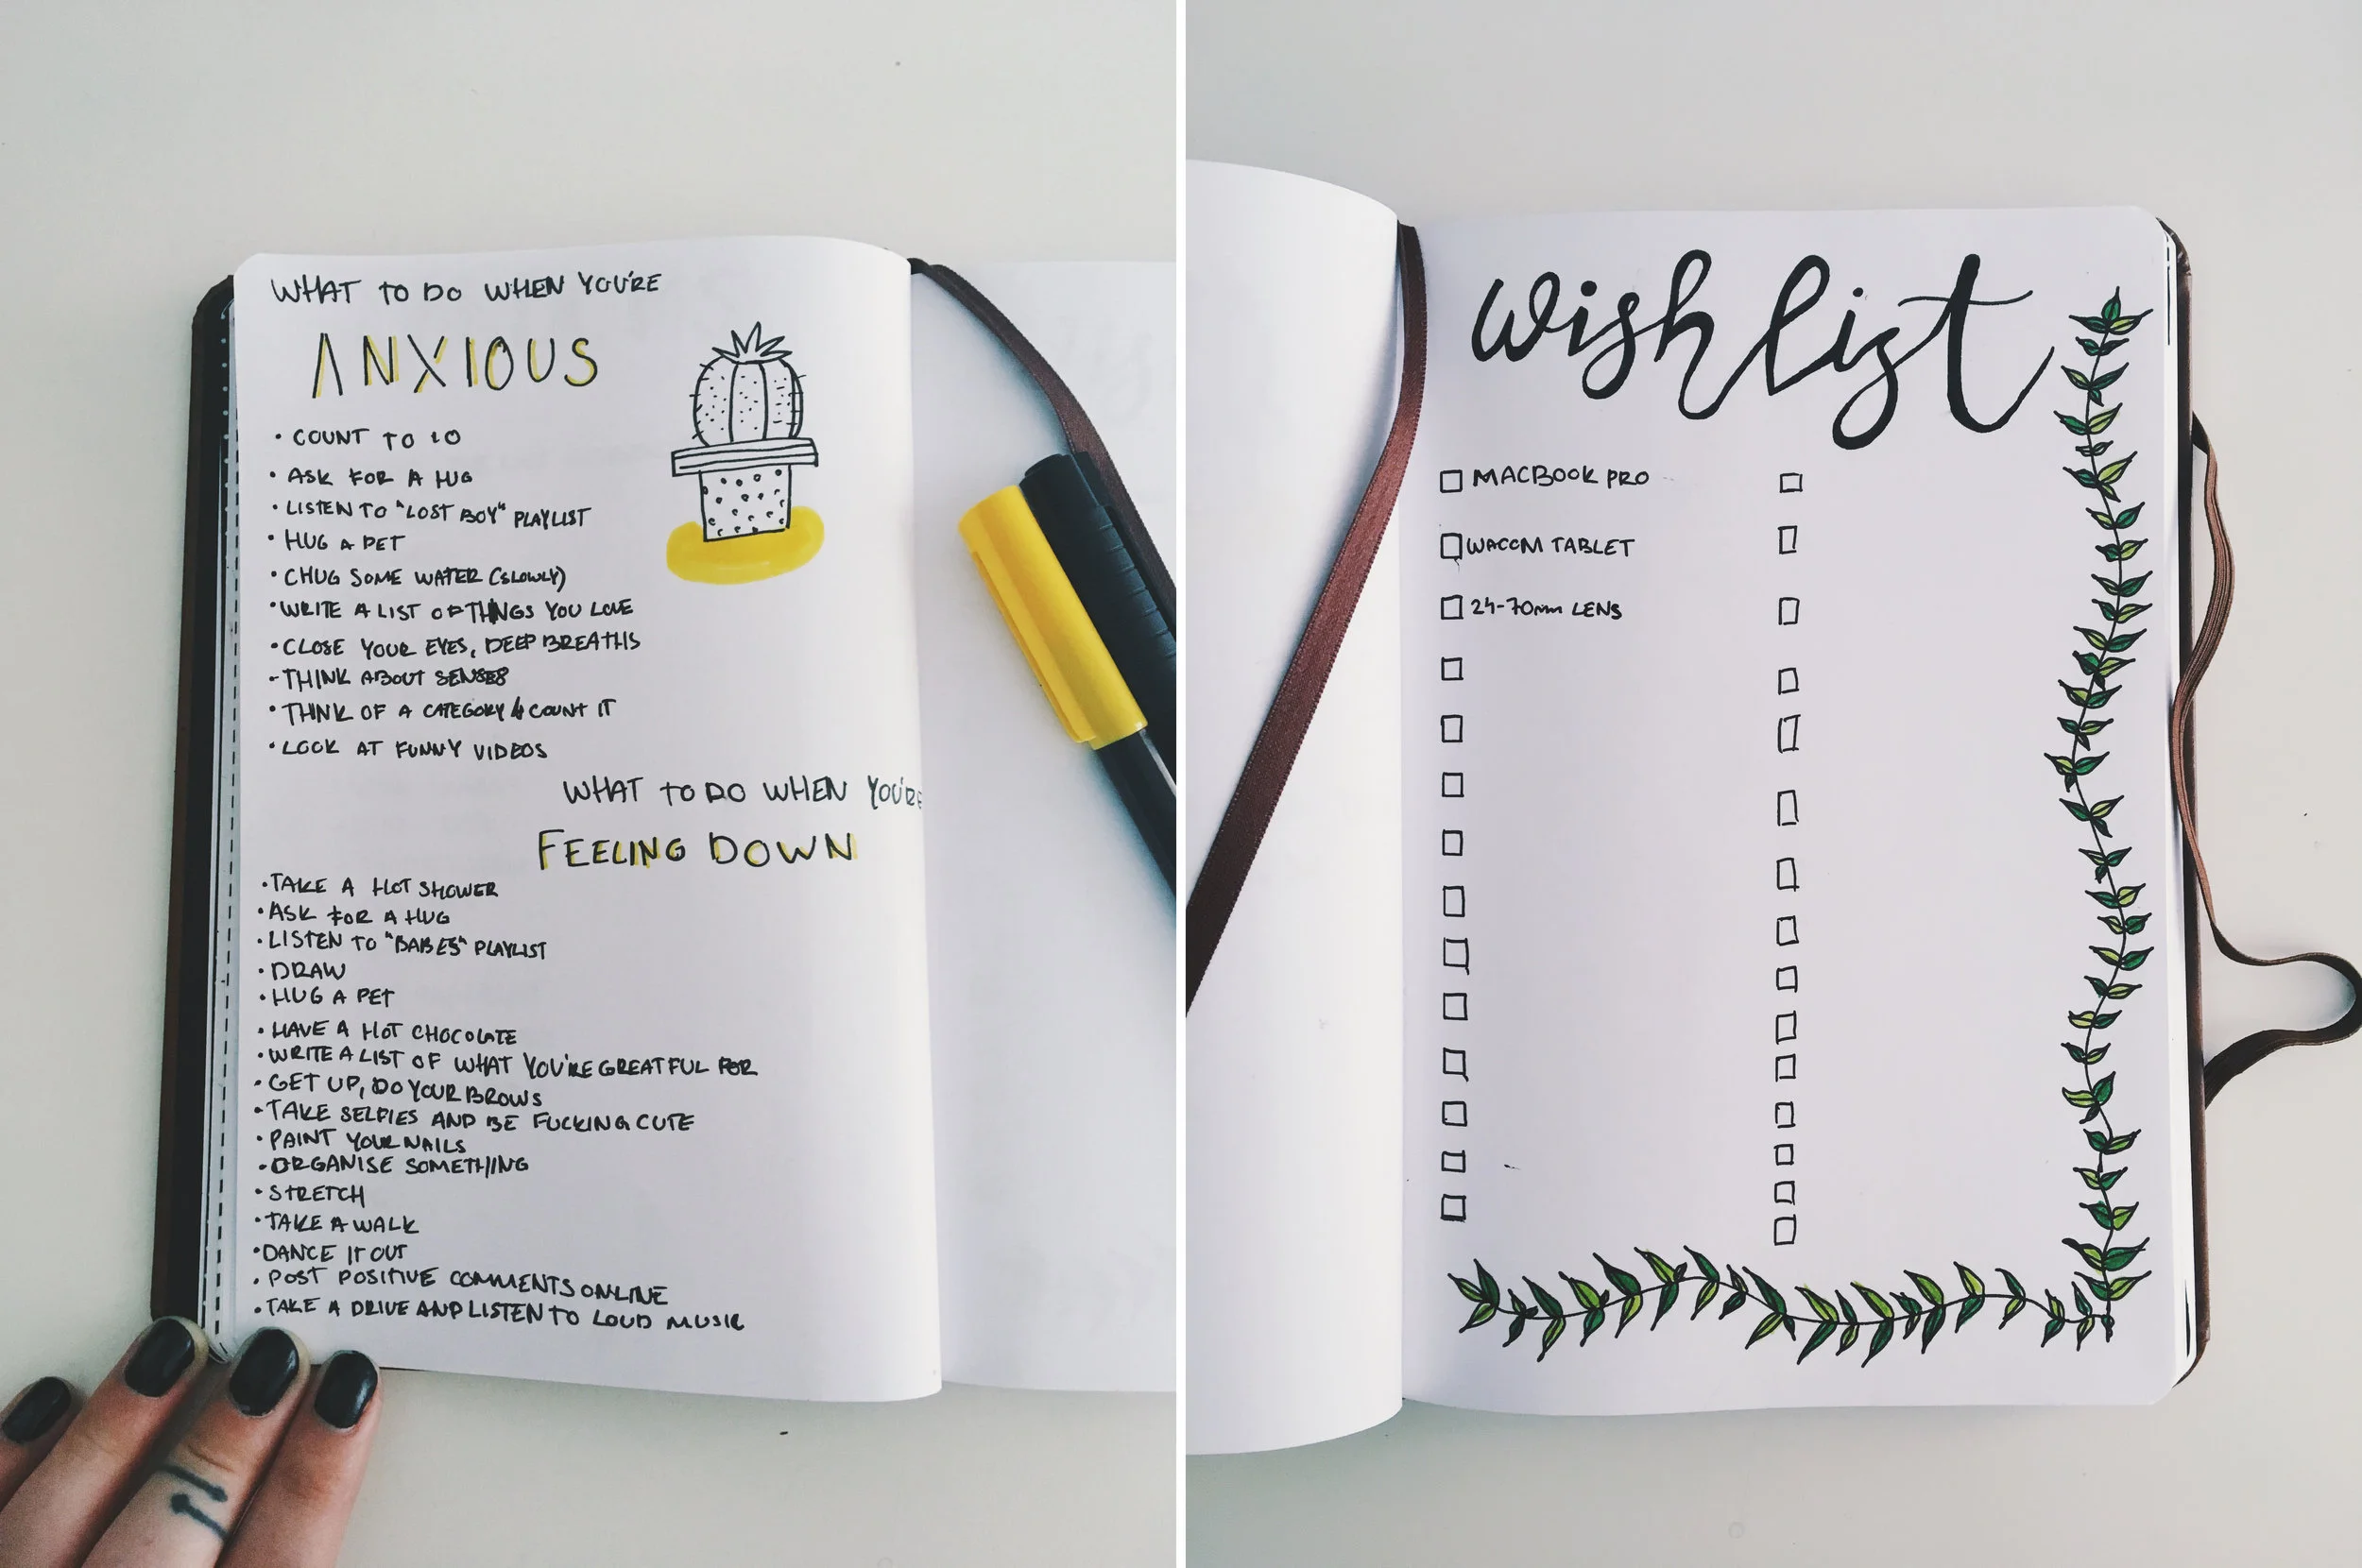 WHAT TO DO WHEN YOU'RE
ANXIOUS
• COUNT TO 10
• ASK FOR A HUG
• LISTEN TO "LOST BOY" PLAYLIST
• HUG A PET
• CHUG SOME WATER (SLOWLY)
• WRITE A LIST OF THINGS YOU LOVE
• CLOSE YOUR EYES, DEEP BREATHS
- THINK ABOUT SENSES
• THINK OF A CATEGORY & COUNT IT
• LOOK AT FUNNY VIDEOS
WHAT TO DO WHEN YOU'RE
FEELING DOWN
• TAKE A HOT SHOWER
• ASK FOR A HUG
• LISTEN TO "BABES" PLAYLIST
• DRAW
• HUG A PET
• HAVE A HOT CHOCOLATE
• WRITE A LIST OF WHAT YOU'RE GREATFUL FOR
• GET UP, DO YOUR BROWS
• TAKE SELFIES AND BE FUCKING CUTE
• PAINT YOUR NAILS
• ORGANISE SOMETHING
• STRETCH
• TAKE A WALK
• DANCE IT OUT
• POST POSITIVE COMMENTS ONLINE
• TAKE A DRIVE AND LISTEN TO LOUD MUSIC
wishlist
MACBOOK PRO
WACOM TABLET
24-70mm LENS